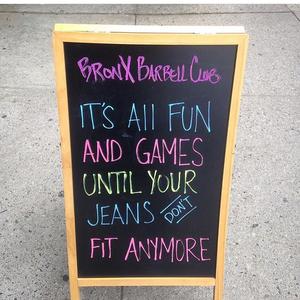 BRONX BARBELL CLUB
IT'S All FUN
AND GAMES
UNTIL YOUR
JEANS DON'T
FIT ANYMORE